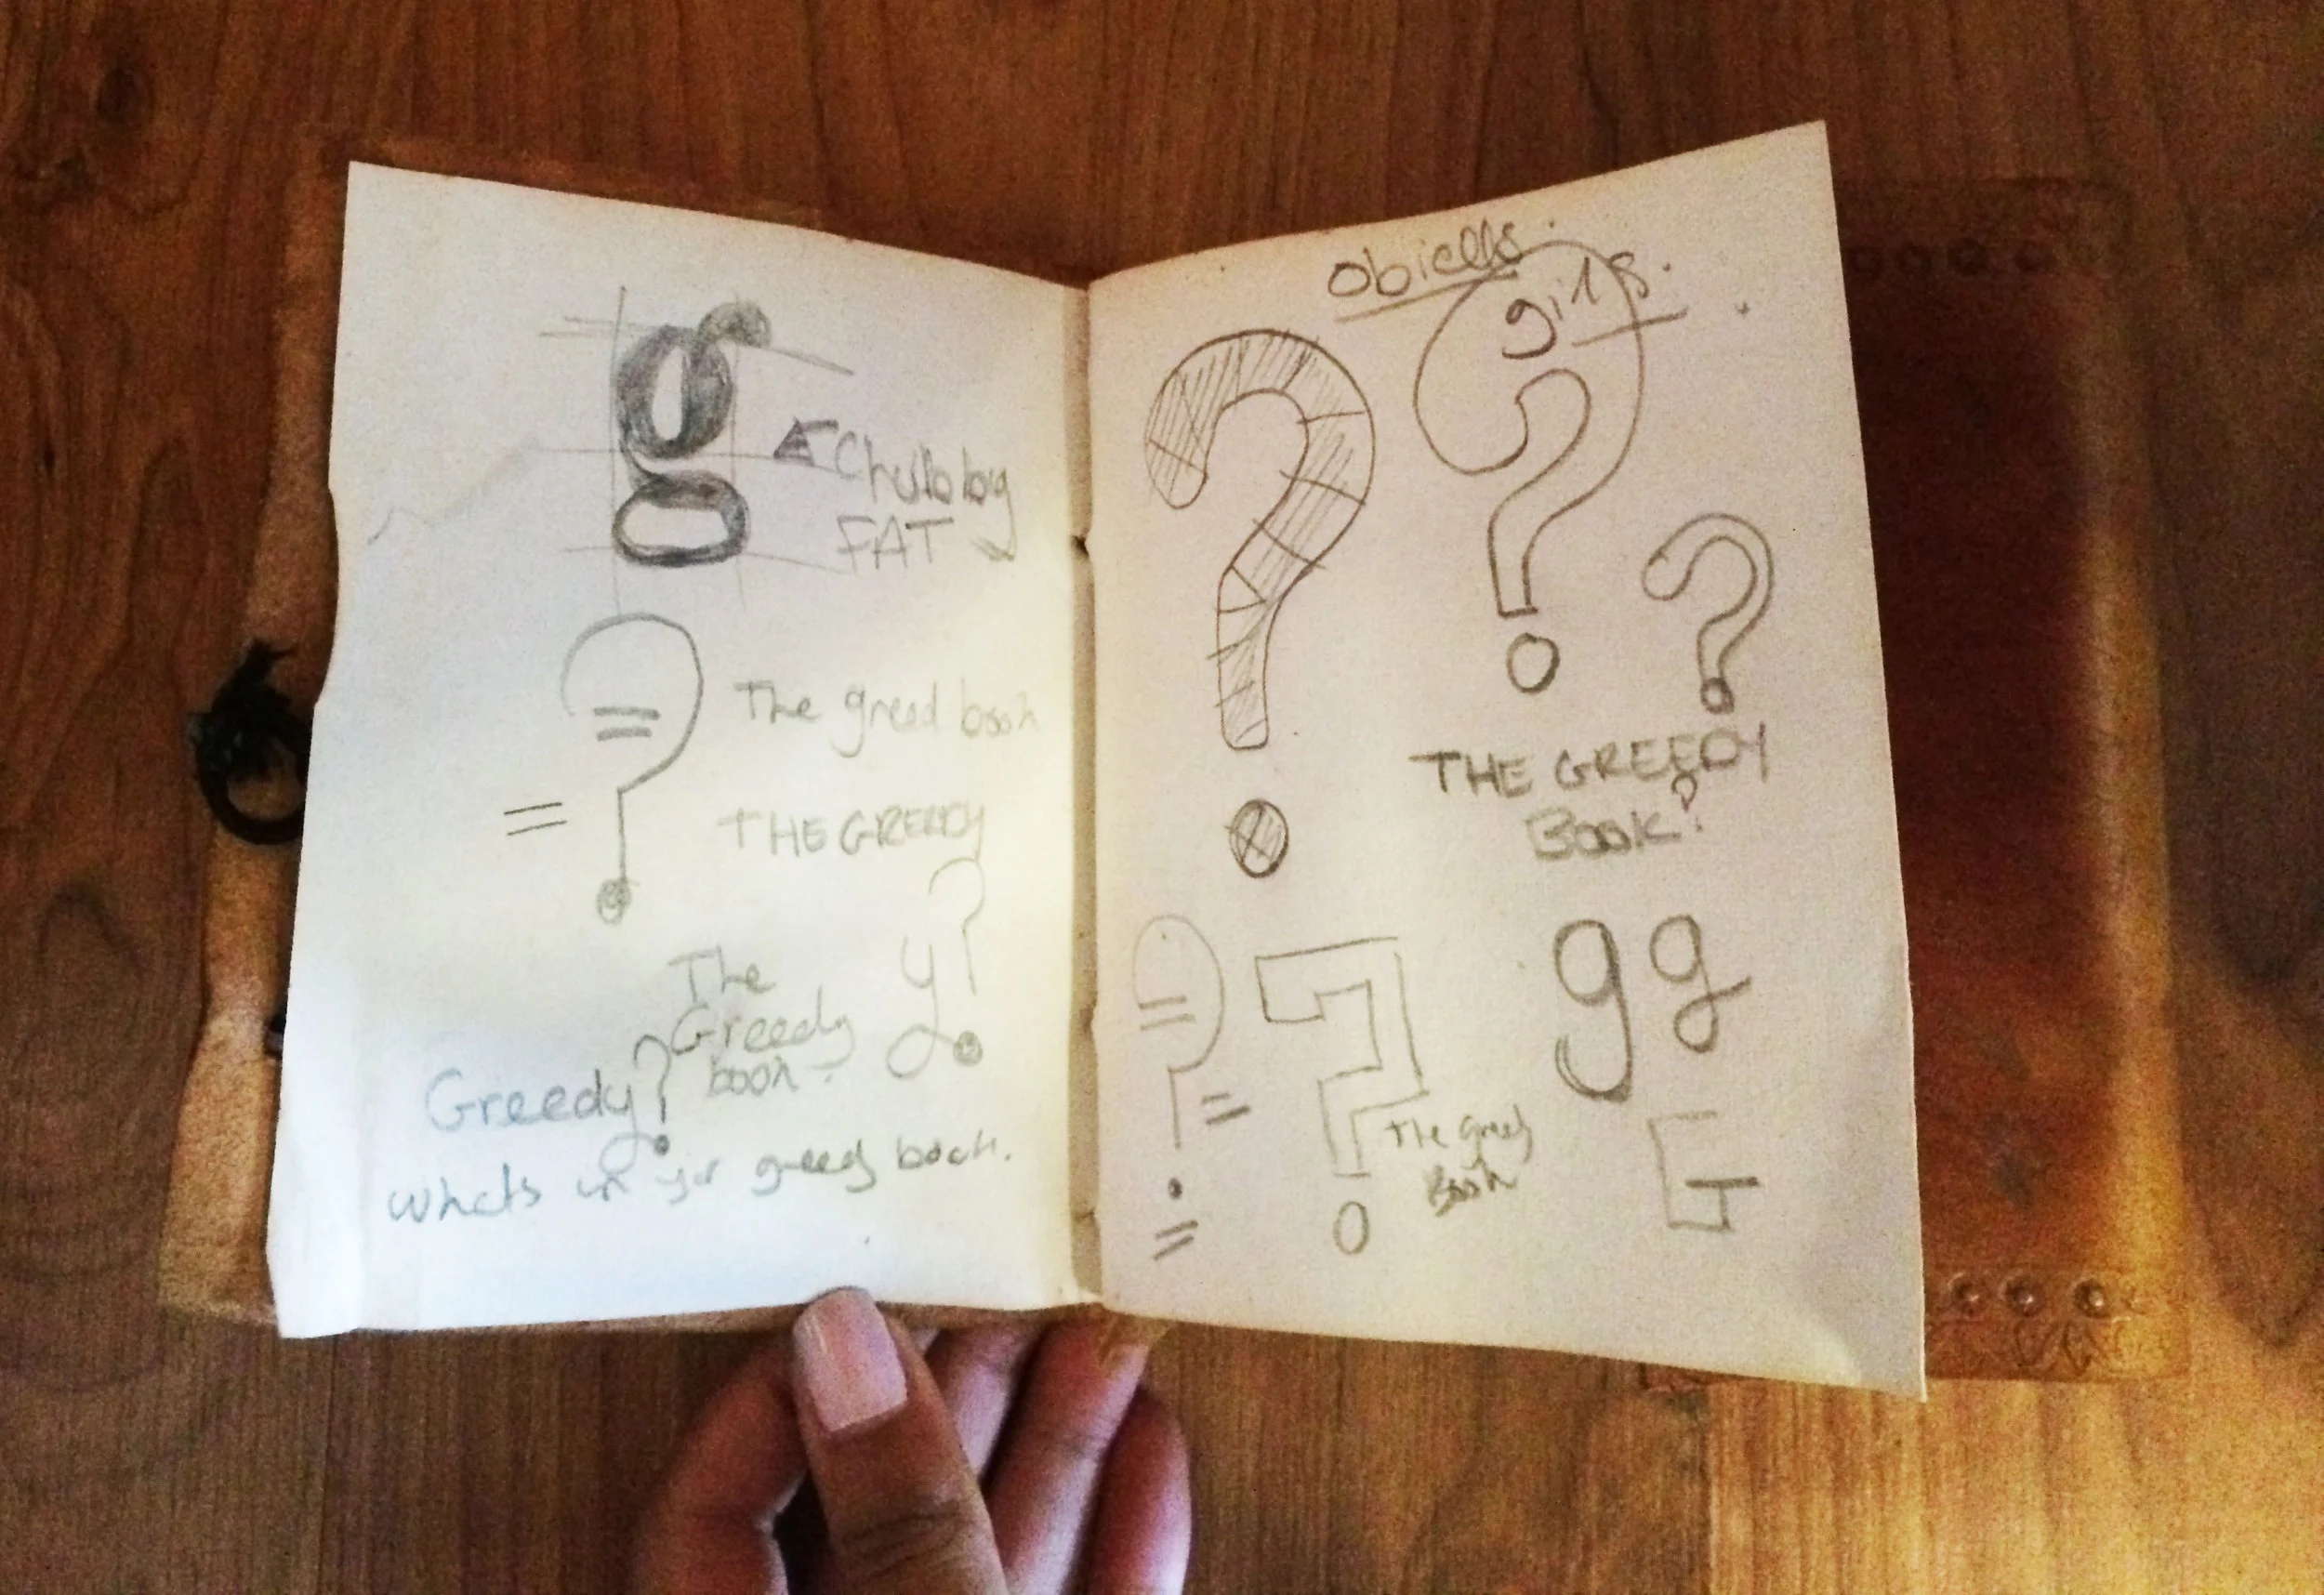 g
Chubby
FAT
The greed book
THE GREEDY
y?
The
Greedy
book.
Greedy?
Whats in yor greedy book.
girls.
?
?
?
THE GREEDY
BOOK?
g g
?
?
The Greedy
Book
G